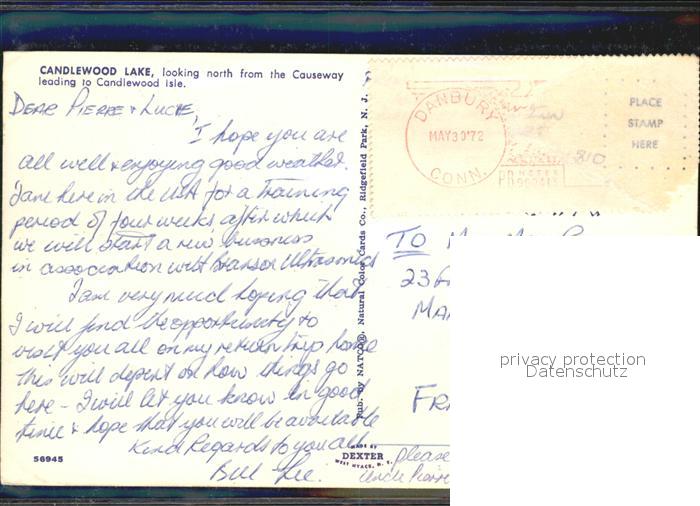 CANDLEWOOD LAKE, looking north from the Causeway
leading to Candlewood Isle.
DEAR PIERRE & LUCIE,
I hope you are
all well & enjoying good weather.
I am here in the USA for a training
period of four weeks after which
we will start a new business
in association with Branson Ultrasonics
I am very much hoping that
I will find the opportunity to
visit you all on my return trip home
this will depend on how things go
here - I will let you know in good
time & hope that you will be available
Kind Regards to you all
Bill
56945
Pub. by NATCO®, Natural Color Cards Co., Ridgefield Park, N. J.
MADE BY
DEXTER
WEST NYACK, N. Y.
DANBURY
MAY30'72
CONN.
PLACE
STAMP
HERE
TO
236
MA
FRA
please
Uncle Pierre
privacy protection
Datenschutz